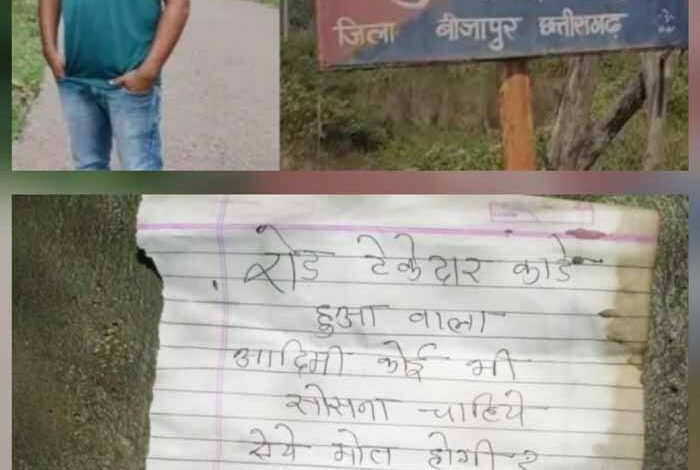 जिला बीजापुर छत्तीसगढ़
रोड ठेकेदार काडे
हुआ वाला
आदिमी कोई भी
सोसना चाहिये
सेये मोत होगी